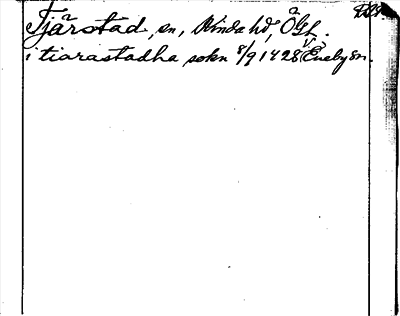 Tjärstad, sn, Kinda hd, Ögl.
i tiarastadha sokn 8/9 1428 Eneby sn.